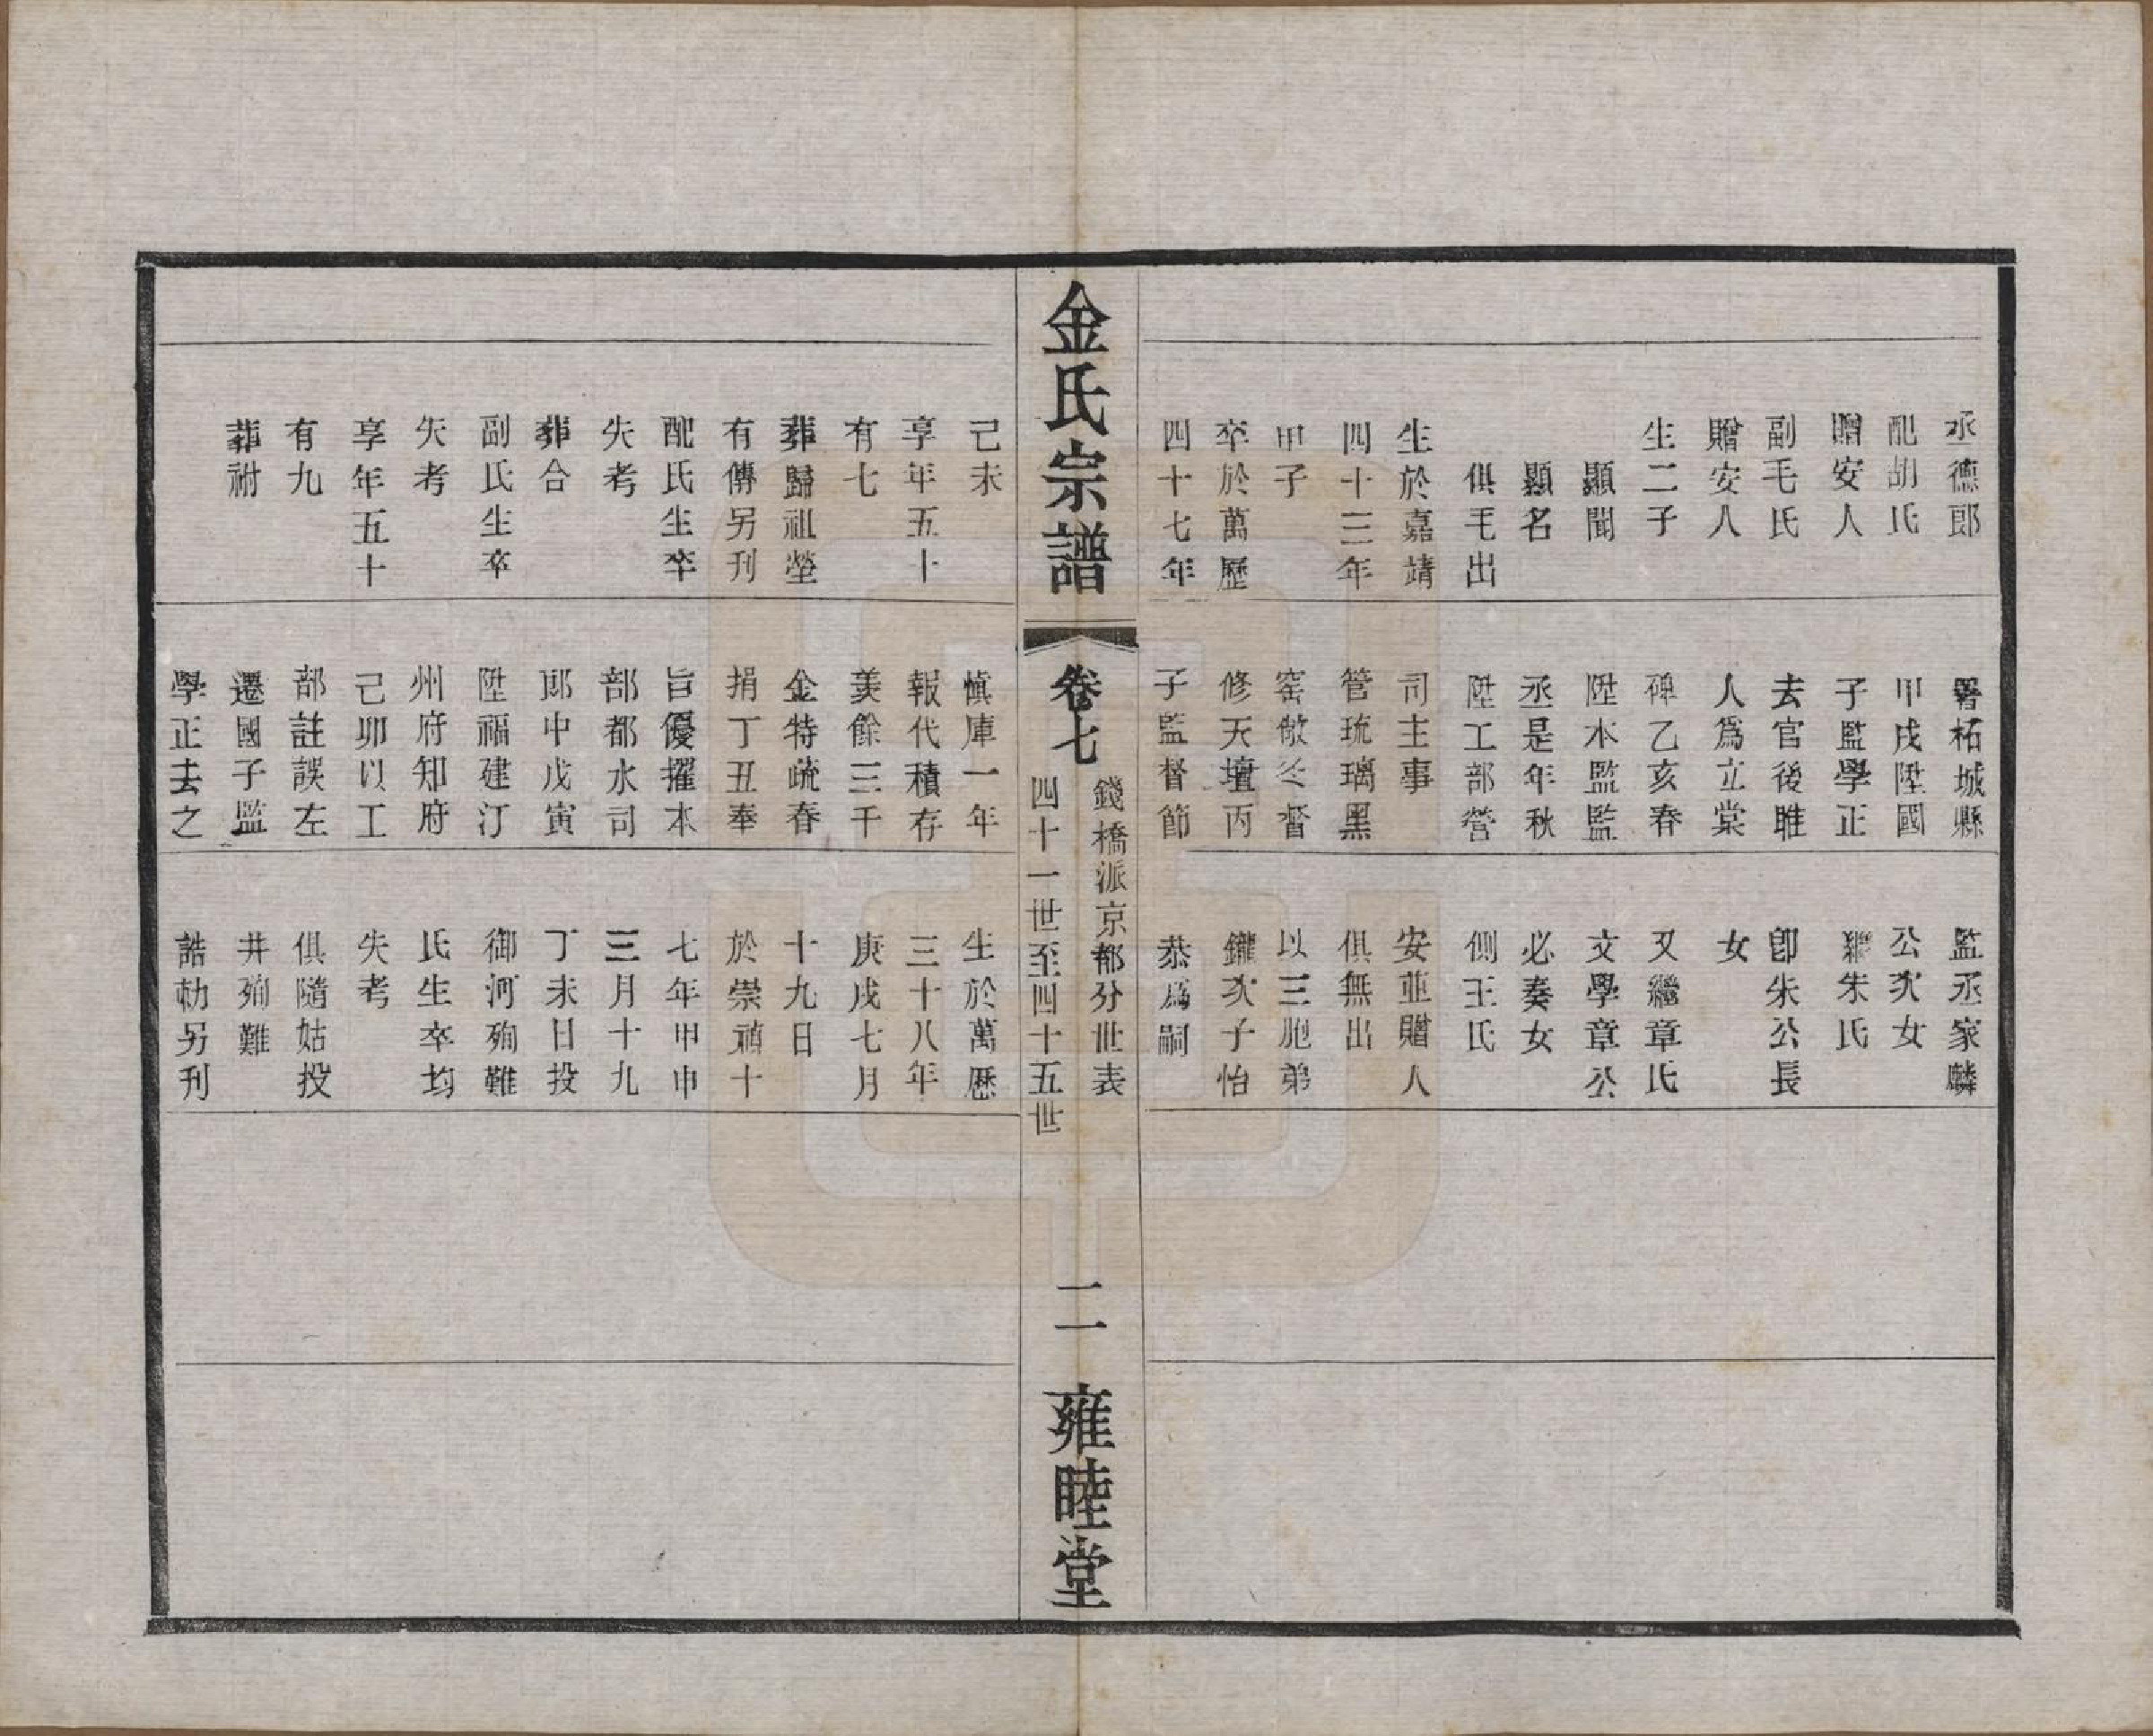 丞德郎
配胡氏
贈安人
副毛氏
贈安人
生二子
顯聞
顯名
俱毛出
生於嘉靖
四十三年
甲子
卒於萬歷
四十七年
署柘城縣
甲戌陞國
子監學正
去官後睢
人爲立棠
碑乙亥春
陞本監監
丞是年秋
陞工部營
司主事
管琉璃黑
窑廠冬督
修天壇丙
子監督節
監丞家麟
公次女
繼朱氏
卽朱公長
女
又繼章氏
文學章公
必奏女
側王氏
安並贈人
俱無出
以三胞弟
鑨次子怡
恭爲嗣
金氏宗譜
卷七
錢橋派京都分世表
四十一世至四十五世
二
雍睦堂
己未
享年五十
有七
葬歸祖塋
有傳另刊
配氏生卒
失考
葬合
副氏生卒
失考
享年五十
有九
葬祔
愼庫一年
報代積存
羨餘三千
金特疏春
捐丁丑奉
旨優擢本
部都水司
郎中戊寅
陞福建汀
州府知府
己卯以工
部註誤左
遷國子監
學正去之
生於萬歷
三十八年
庚戌七月
十九日
於崇禎十
七年甲申
三月十九
丁未日投
御河殉難
氏生卒均
失考
俱隨姑投
井殉難
誥勅另刊